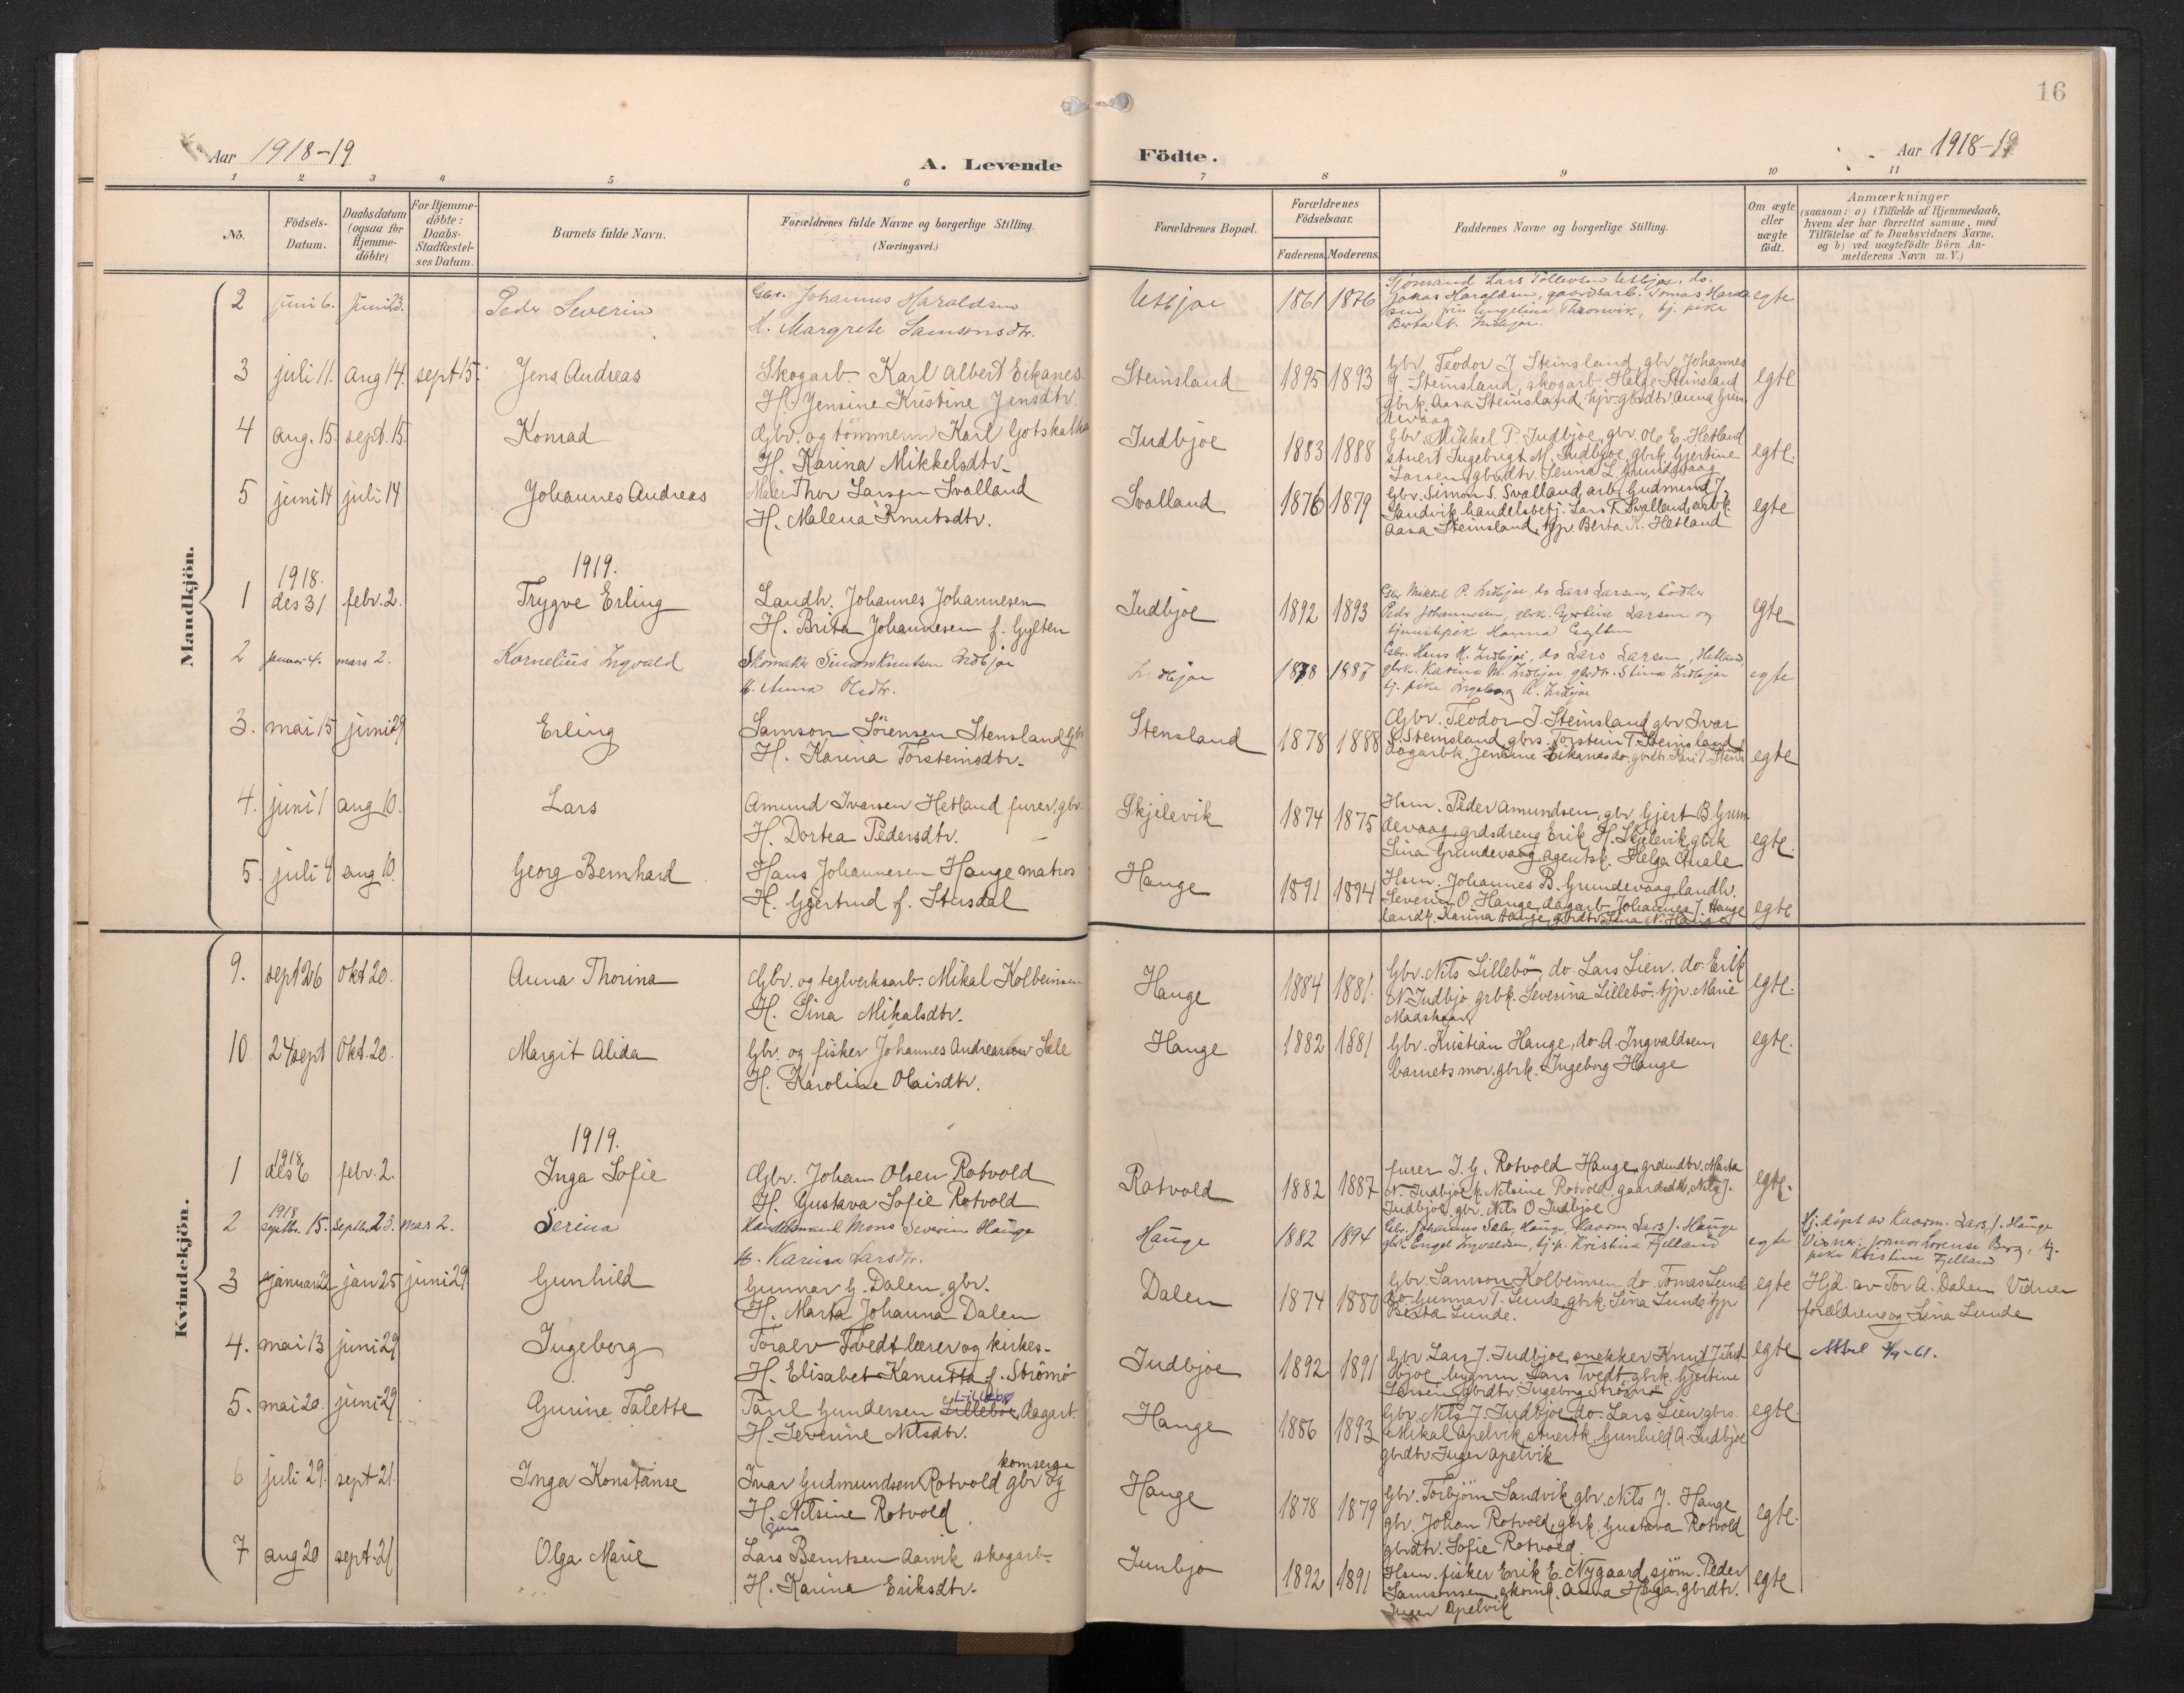 16
Aar 1918-19
A. Levende
Födte.
Aar 1918-19
1 2 3 4 5 6 7 8 9 10 11
No.
Födsels-Datum.
Daabsdatum (ogsaa for Hjemme-döbte)
For Hjemme-döbte: Daabs-Stadfæstel-ses Datum.
Barnets fulde Navn.
Forældrenes fulde Navne og borgerlige Stilling.
(Næringsvei.)
Forældrenes Bopæl.
Forældrenes Födselsaar.
Faderens. Moderens.
Faddernes Navne og borgerlige Stilling.
Om ægte eller uægte födt.
Anmærkninger
(saasom: a) i Tilfælde af Hjemmedaab,
hvem der har forrettet samme, med
Tilföielse af to Daabsvidners Navne.
og b) ved uægtefödte Börn An-
melderens Navn m. V.)
Mandkjön.
2 juni 6. juni 23. Peder Severin
Gbr. Johannes Haraldsen
H. Margrete Samsonsdtr.
Utbjoe 1861 1876
Sjömand Lars Tollevsen Utbjoe, do.
Jonas Haraldsen, gaardsarb. Tomas Harald
sen, fru Angelina Thronvik, tj. pike
Berta N. Indbjoe.
egte
3 juli 11. aug 14. sept 15. Jens Andreas
Skogarb. Karl Albert Eikanes.
H. Jensine Kristine Jensdtr.
Steinsland 1895 1893
Gbr. Teodor J Steinsland, gbr. Johannes
J Steinsland, skogarb. Helge Steinsland
gbrk. Aasa Steinsland, hjv. gbrdtr Anna Grun
devaag
egte
4 aug. 15. sept. 15. Konrad
Gbr. og tömmerm Karl Gotskalks
H. Karina Mikkelsdtr.
Indbjoe 1883 1888
Gbr. Mikkel P. Indbjoe, gbr. Ole E. Hetland
stuert Ingebrigt M. Indbjoe, gbrk. Gjertine
Larsen, gbrdtr. Senna L Grundevaag
egte.
5 juni 14 juli 14 Johannes Andreas
Maler Thor Larsen Svalland
H. Malena Knutsdtr.
Svalland 1876 1879
Gbr. Simon S. Svalland, arb. Gudmund J.
Sandvik, handelsbetj. Lars T. Svalland, arbk.
Aasa Steinsland, tjp. Berta K. Hetland
egte
1919.
1918.
1 des 31 febr. 2. Trygve Erling
Landh. Johannes Johannesen
H. Brita Johannesen f. Gylten
Indbjoe 1892 1893
Gbr Mikkel P. Indbjoe, do Lars Larsen, bödker
Peder Johannesen, gbrk. Gjertine Larsen og
tjenestepike Hanna Gylten
egte
2 januar 4. mars 2. Kornelius Ingvald
Skomaker Simon Knutsen Indbjoe
H. Anna Olsdtr.
Indbjoe 1878 1887
Gbr. Hans H. Indbjoe, do Lars Larsen, Hetland,
gbrk. Karina M. Indbjoe, gbrdtr. Stina Indbjoe
tj. pike Ingeborg A. Indbjoe
egte
3. mai 15 juni 29 Erling
Samson Sörensen Stensland Gbr
H. Karina Torsteinsdtr.
Stensland 1878 1888
Gbr. Teodor J. Steinsland, gbr Ivar
S. Steinsland, gbrs. Torstein T. Steinsland
dagarbk. Jensine Eikanes do. gbrdtr. Kari T. Steins
egte
4. juni 1 aug 10. Lars
Amund Ivarsen Hetland furer, gbr.
H. Dortea Pedersdtr.
Skjelevik 1874 1875
Hsm. Peder Amundsen, gbr. Gjert B. Grun
devaag, grdsdreng Erik H. Skjelevik, gbrk
Sina Grundevaag, agentsk. Helga Quale
egte.
5. juli 4 aug 10. Georg Bernhard
Hans Johannesen Hauge matros
H. Gjertrud f. Stusdal
Hauge 1891 1894
Hsm. Johannes B. Grundevaag, landh.
Severin O. Hauge, dagarb. Johannes J. Hauge
landk. Karina Hauge, gbrdtr. Sina N. Hauge
egte
Kvindekjön.
9. sept 26 okt 20. Anna Thorina
Gbr. og teglverksarb. Mikal Kolbeinsen
H. Sina Mikalsdtr.
Hauge 1884 1881.
Gbr. Nils Lillebö, do. Lars Lien, do. Erik
N. Indbjo, grbk. Severina Lillebö, tjp. Marie
Madshaar
egte.
10 24 sept Okt. 20. Margit Alida
Gbr. og fisker Johannes Andreassen Sæle
H. Karoline Olaisdtr.
Hauge 1882 1881
Gbr. Kristian Hauge, do. A. Ingvaldsen,
barnets mor, gbrk. Ingeborg Hauge
egte.
1919.
1918
1 des 6 febr. 2. Inga Sofie
Gbr. Johan Olsen Rotvold
H. Gustava Sofie Rotvold
Rotvold 1882 1887
furer I. G. Rotvold Hauge, grdmdtr. Marta
N. Indbjoe, k. Nilsine Rotvold, gaardsdtr. Nils J.
Indbjoe, gbr. Nils O Indbjoe
egte.
1918
2 septbr. 15. septbr. 23. mars 2. Serina
Handelsmand Mons Severin Hauge
H. Karina Larsdtr.
Hauge 1882 1894
Gbr. Johannes Sæle, Hauge, Kaarm. Lars J. Hauge
gbrk. Engel Ingvaldsen, tj. p. Kristina Fjelland
egte
Hj. döpt av Kaarm. Lars J. Hauge
Vidner: jormor Lorense Berg, tj.
pike Kristine Fjelland
3 januar 22 jan 25 juni 29 Gunhild
Gunnar G. Dalen, gbr.
H. Marta Johanna Dalen
Dalen 1874 1880
Gbr. Samson Kolbeinsen, do. Tomas Lunde
do. Gunnar T. Lunde, gbrk. Sina Lunde, tjp
Berta Lunde.
egte
Hjd. av Tor A. Dalen Vidner
forældrene og Sina Lunde
4. mai 13 juni 29 Ingeborg
Toralv Tvedt lærer og kirkes-
H. Elisabet Kanutta f. Strömö
Indbjoe 1892 1891
Gbr. Lars J. Indbjoe, snekker Knut J. Ind-
bjoe, bygnm. Lars Tvedt, gbrk. Gjertine
Larsen, gbrdtr Ingeborg Strömö
egte
5. mai 20. juni 29 Gurine Talette
Lillebø
Paul Gundersen Lilleböe, dagarb.
H. Severine Nilsdtr.
Hauge 1886 1893
Gbr. Nils J. Indbjoe, do. Lars Lien, gbrs.
Mikal Apelvik, stuertk. Gunhild A. Indbjoe
gbrdtr Inger Apelvik
egte.
6 juli 29. sept 21. Inga Konstanse
Ivar Gudmundsen Rotvold gbr og
H. Nilsine Rotvold
Hauge 1878 1879
Gbr. Torbjörn Sandvik, gbr. Nils J. Hauge
gbr. Johan Rotvold, gbrk. Gustava Rotvold
gbrdtr. Sofie Rotvold.
egte.
7 aug 20 sept. 21 Olga Marie
Lars Berntsen Aarvik skogarb.
H. Karina Eriksdtr.
Innbjo 1892 1891
Hsm. fisker Erik E. Nygaard, sjöm. Peder
Samsonsen, skomk. Anna Helga, gbrdtr.
Inger Apelvik
egte